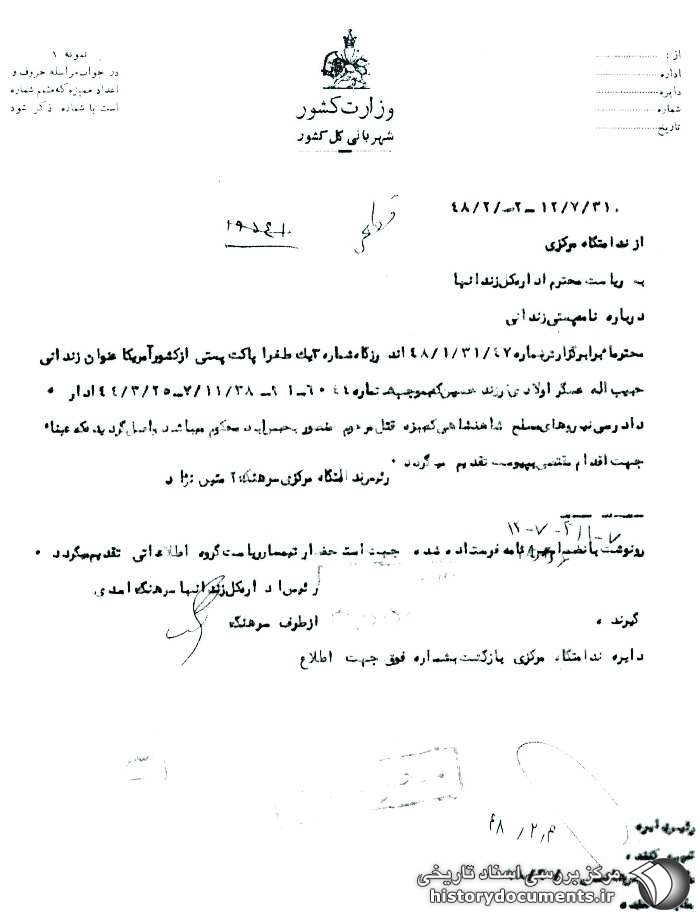 نمونه ۱
در جواب مراسله حروف و
اعداد ممیزه که ضم شماره
است با شماره ذکر شود
وزارت کشور
شهربانی کل کشور
از :
اداره
دایره
شماره
تاریخ
۱۲/۷/۳۱۰ ــ ۲ــ ۴۸/۲/
از ندامتگاه مرکزی
به ریاست محترم اداره کل زندانها
درباره نامه پستی زندانی
محترما برابر گزارش شماره ۴۸/۱/۳۱/۴۷ اندرزگاه شماره ۲ یک طغرا پاکت پستی از کشور آمریکا بعنوان زندانی
حبیب اله عسگر اولادی فرزند حسین که بموجب شماره ۷/۱۱/۳۸ ــ ۴۴/۳/۲۵ اداره
دادرسی نیروهای مسلح شاهنشاهی که ببزه قتل مرحوم منصور بحبس ابد محکوم میباشد واصل گردیده که عینا
جهت اقدام مقتضی بپیوست تقدیم میگردد ۰
رئیس ندامتگاه مرکزی سرهنگ ۲ متین نژاد
۱۲-۷-
رونوشت بانضمام نامه فرستاده شده جهت استحضار تیمسار ریاست گروه اطلاعاتی تقدیم میگردد ۰
رئیس اداره کل زندانها سرهنگ
گیرنده
از طرف سرهنگ
دایره ندامتگاه مرکزی بازگشت بشماره فوق جهت اطلاع
۴۸/۲/۴
رئیس دایره
تهیه کننده
مرکز بررسی اسناد تاریخی
historydocuments.ir